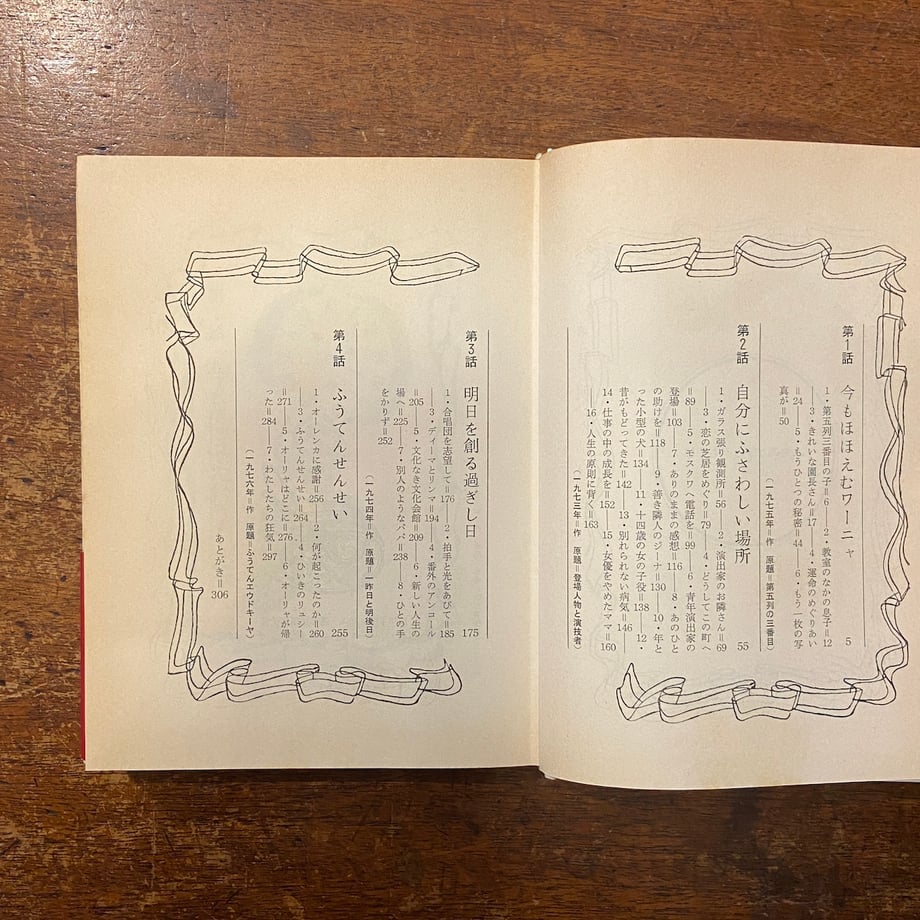 第1話 今もほほえむワーニャ 5
1・第五列三番目の子=6 2・教室のなかの息子=12
——3・きれいな園長さん=17 4・運命のめぐりあい
=24 5・もうひとつの秘密=44 6・もう一枚の写
真が=50
(一九七五年=作 原題=第五列の三番目)
第2話 自分にふさわしい場所 55
1・ガラス張り観測所=56 2・演出家のお隣さん=69
3・恋の芝居をめぐり=79 4・どうしてこの町へ
=89 5・モスクワへ電話を=99 6・青年演出家の
登場=103 7・ありのままの感想=116 8・あのひと
の助けを=118 9・善き隣人のジーナ=130 10・年と
った小型の犬=134 11・十四歳の女の子役=138 12・
昔がもどってきた=142 13・別れられない病気=146
14・仕事の中の成長を=152 15・女優をやめたママ=160
——16・人生の原則に背く=163
(一九七三年=作 原題=登場人物と演技者)
第3話 明日を創る過ぎし日 175
1・合唱団を志望して=176 2・拍手と光をあびて=185
——3・ディーマとリンマ=194 4・番外のアンコール
=205 5・文化なき文化会館=209 6・新しい人生の
場へ=225 7・別人のようなパパ=238 8・ひとの手
をかりず=252
(一九七四年=作 原題=一昨日と明後日)
第4話 ふうてんせんせい 255
1・オーレンカに感謝=256 2・何が起こったのか=260
——3・ふうてんせんせい=264 4・ひいきのリューシ
=271 5・オーリャはどこに=276 6・オーリャが帰
った=284 7・わたしたちの狂気=297
(一九七六年=作 原題=ふうてんエウドキーヤ)
あとがき=306